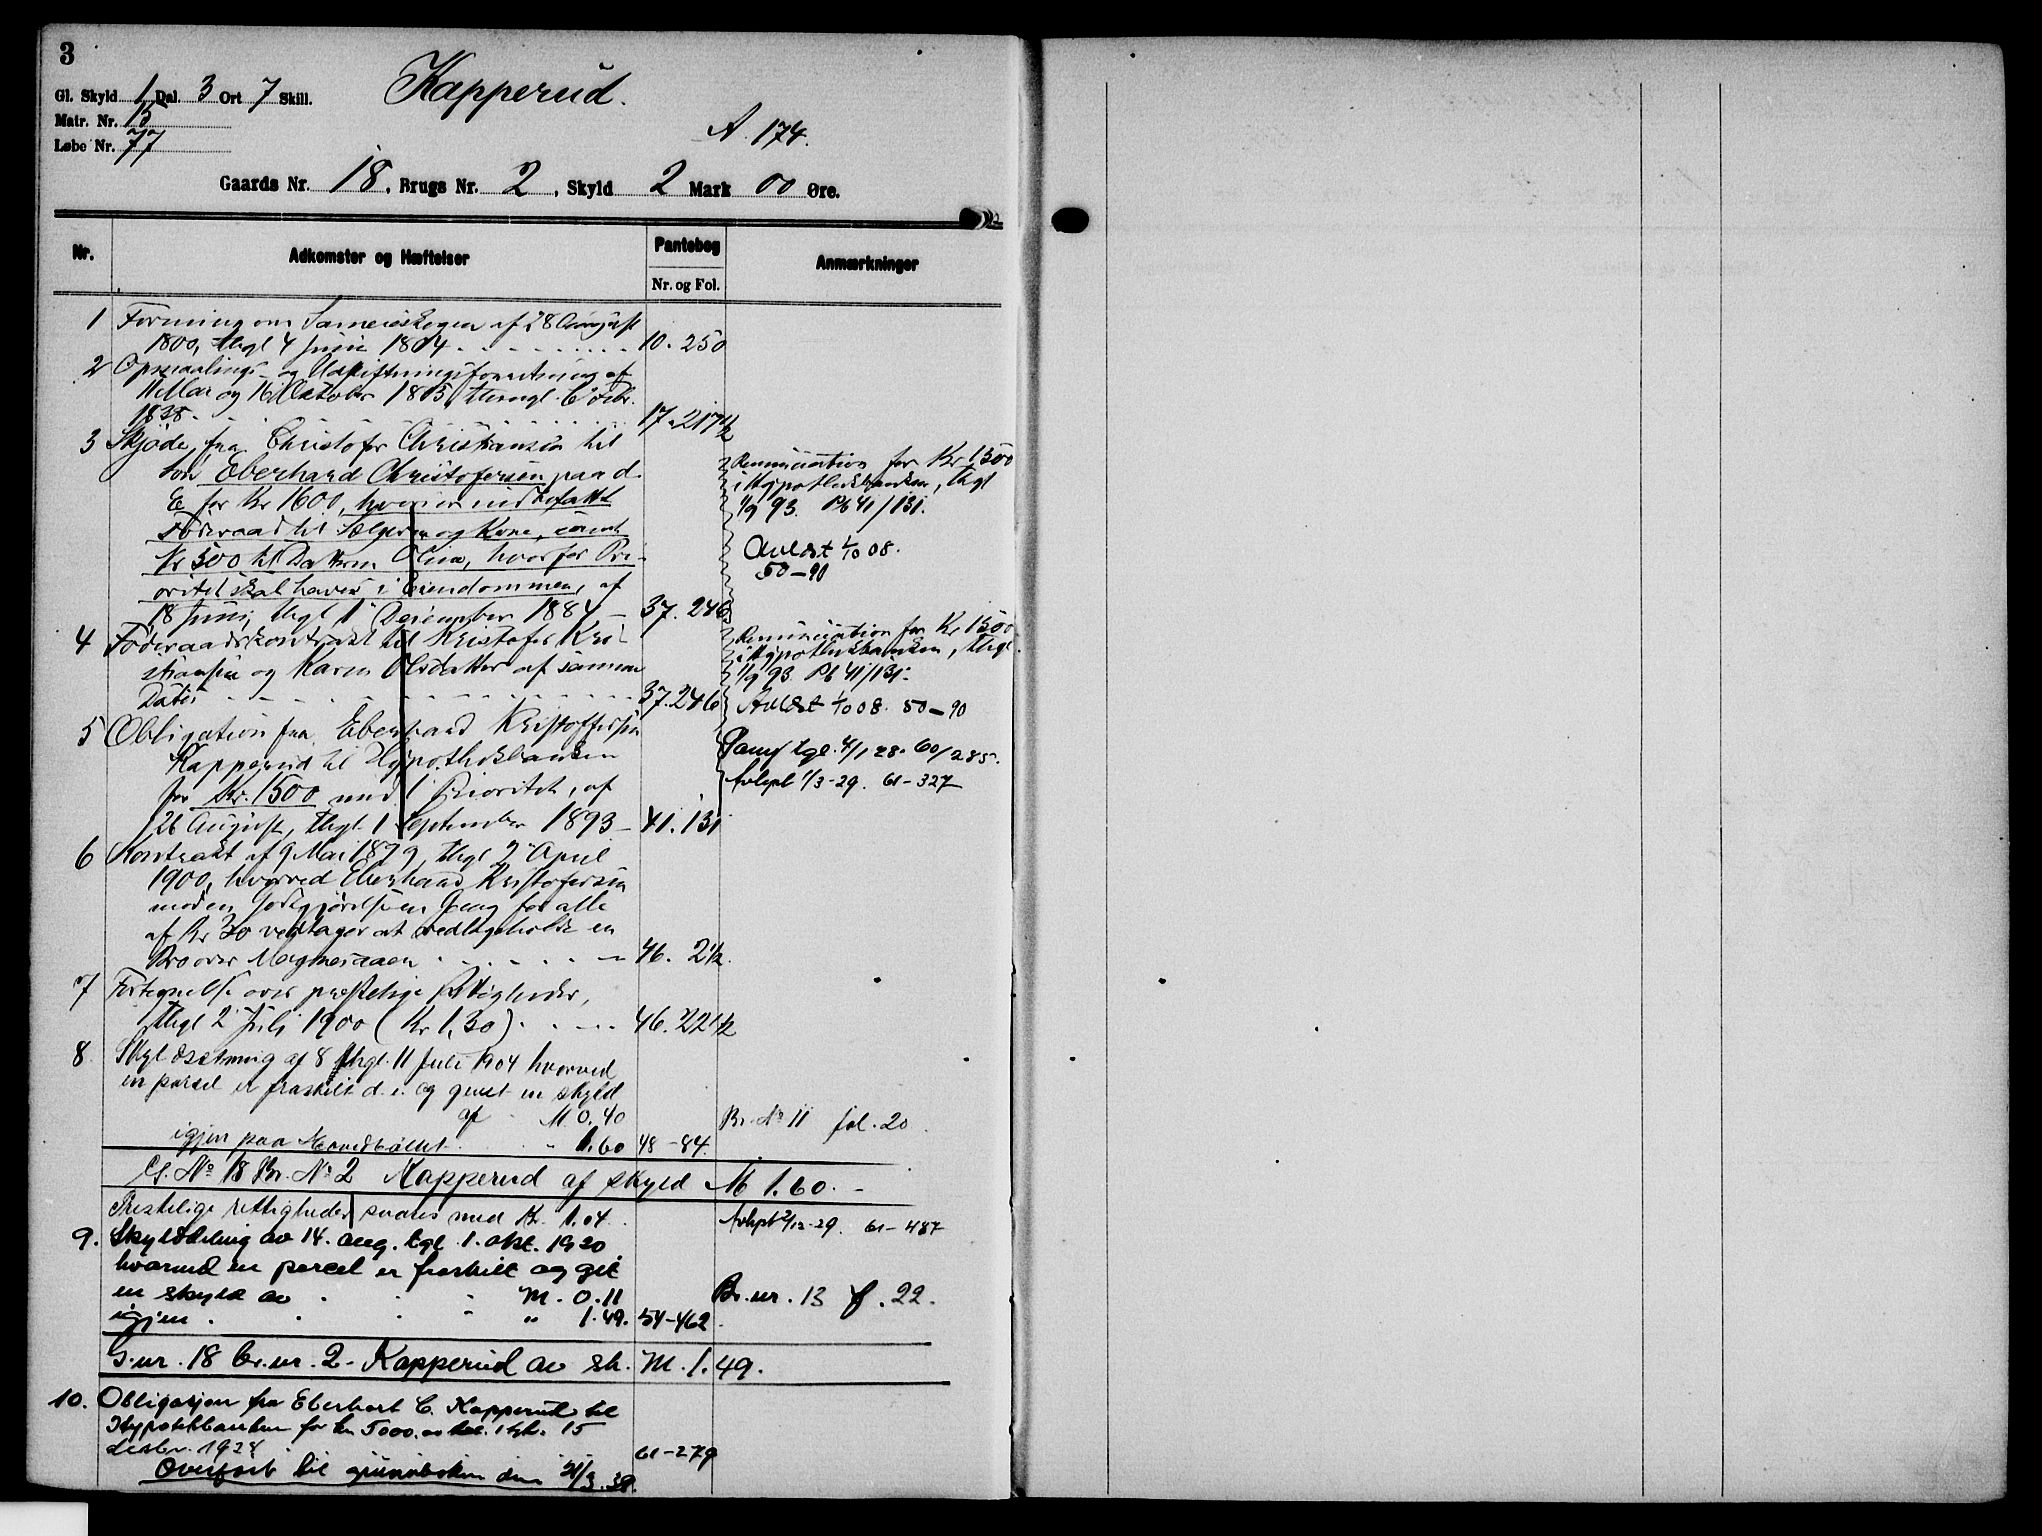 3
Gl. Skyld 1 Dal. 3 Ort 7 Skill.
Kapperud.
Matr. Nr. 15
A. 174.
Løbe Nr. 77
Gaards Nr. 18, Brugs Nr. 2, Skyld 2 Mark 00 Øre.
Nr.
Adkomster og Hæftelser
Pantebog
Nr. og Fol.
Anmærkninger
1 Forening om Sameieskogen af 28 August
1800, thgl 4 Juni 1804 10. 250
2 Opmaalings- og Udskiftningsforretning af
11 Mai og 16 Oktober 1815, thingl. 6 Febr.
1838. 17. 217½
3 Skjøde fra Christofer Christiansen til
Søn Eberhard Christofersen paa d.
E for Kr 1600, hvori er indbefattet
Føderaad til Sælgeren og Kone, samt
Kr 500 til Datteren Olina, hvorfor Pri-
oritet skal haves i Eiendommen, af
18 Juni, thgl 1 December 1884 37. 246
Renunciation for Kr 1500
i Hypothekbanken, thgl
1/9 93. Pb 41/131.
Avlæst 1/10 08.
50-90
4 Føderaadskontrakt til Kristofer Kri-
stiansen og Karen Olsdatter af samme
Dato 37. 246
Renunciation for Kr 1500
i Hypothekbanken, thgl.
1/9 93. Pb 41/131.
Avlæst 1/10 08. 50-90
5 Obligation fra Eberhard Kristoffersen
Kapperud til Hypothekbanken
for Kr. 1500 med 1 Prioritet, af
26 August, thgl. 1 September 1893 41. 131
tgl. 4/1 28. 60/285.
Avlyst 1/3-29. 61-327
6 Kontrakt af 9 Mai 1879, thgl 2 April
1900, hvorved Eberhard Kristofersen
mod en Godtgjørelse en Gang for alle
af Kr 30 vedtager at vedligeholde en
Bro over Magnesaaen 46. 2½.
7 Fortegnelse over præstelige Rettigheder,
thgl 2 Juli 1900 (Kr 1,30) 46. 22½
8. Skyldsetning af 8 thgl. 11 Juli 1904 hvorved
en parsel er fraskilt d. e. og givet en skyld
af M 0.40
Br. No 11 fol. 20.
igjen paa Hovedbøllet " 1.60 48-84.
G. No 18 Br. No 2 Kapperud af skyld M 1.60.
Prestelige rettigheder svares med Kr. 1.04.
Avlyst 2/12-29. 61-487
9. Skylddeling av 14. aug. tgl. 1. okt. 1920
hvorved en parcel er fraskilt og git
en skyld av M. 0.11
Br. nr. 13 f. 22.
igjen " 1.49. 54-462.
G. nr. 18 br. nr. 2 - Kapperud av sk. M. 1.49.
10. Obligasjon fra Eberhart C. Kapperud til
Hypotekbanken for kr 5000.
desbr. 1928 61-279
Overført til grunnboken den 21/3.39.